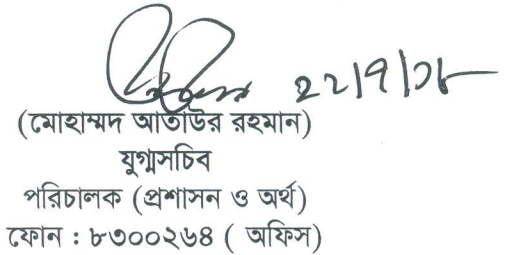 ২২/৭/১৮
(মোহাম্মদ আতাউর রহমান)
যুগ্মসচিব
পরিচালক (প্রশাসন ও অর্থ)
ফোন : ৮৩০০২৬৪ ( অফিস)